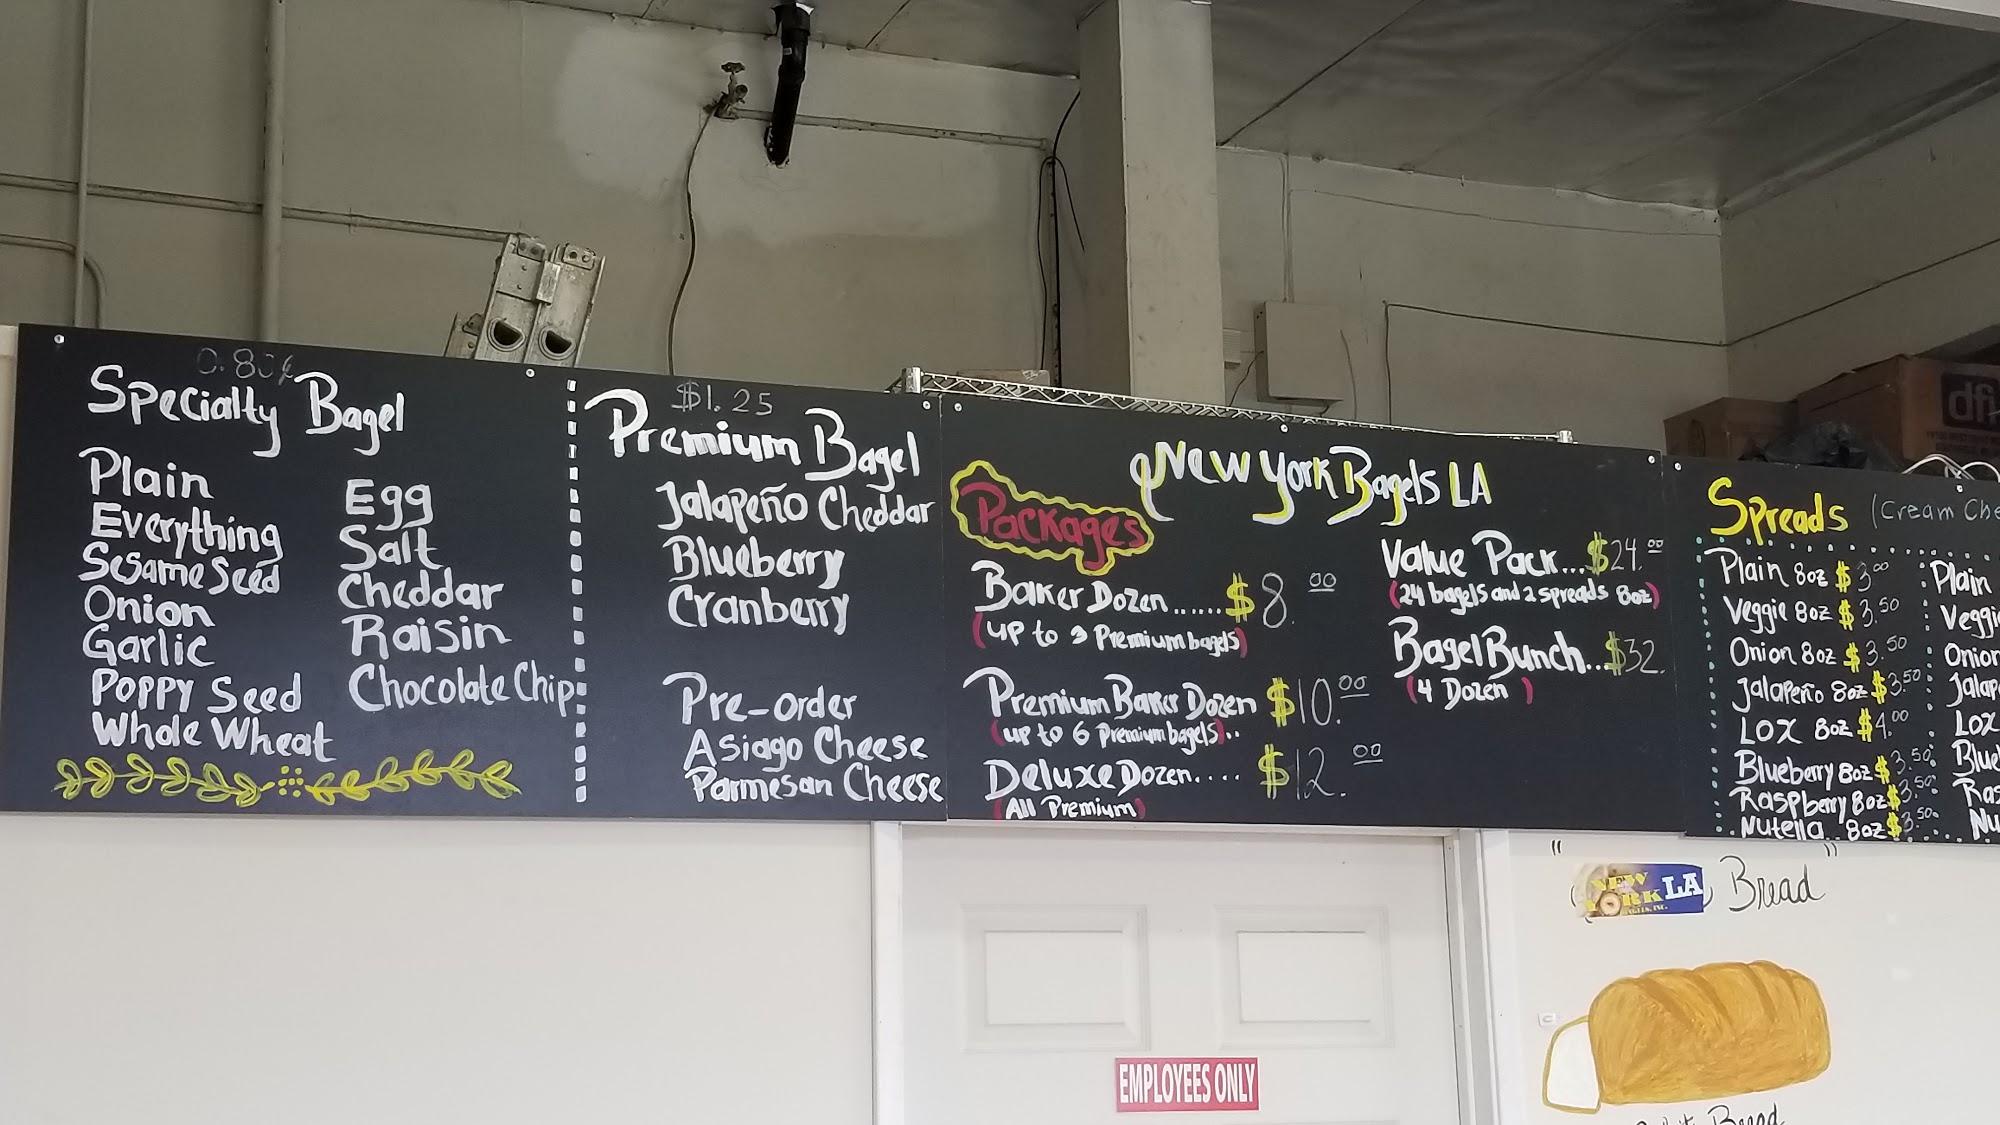 0.80¢
Specialty Bagel
Plain
Everything
Sesame Seed
Onion
Garlic
Poppy Seed
Whole Wheat
Egg
Salt
Cheddar
Raisin
Chocolate Chip
$1.25
Premium Bagel
Jalapeño Cheddar
Blueberry
Cranberry
Pre-order
Asiago Cheese
Parmesan Cheese
New York Bagels LA
Packages
Baker Dozen...... $8.00
(up to 3 Premium bagels)
Premium Baker Dozen $10.00
(up to 6 Premium bagels)..
Deluxe Dozen.... $12.00
(All Premium)
Value Pack... $24.00
(24 bagels and 2 spreads 8oz)
Bagel Bunch... $32.
(4 Dozen)
Spreads (Cream Che
Plain 8oz $3.00
Veggie 8oz $3.50
Onion 8oz $3.50
Jalapeño 8oz $3.50
LOX 8oz $4.00
Blueberry 8oz $3.50
Raspberry 8oz $3.50
Nutella 8oz $3.50
Plain
Veggie
Onion
Jalap
LOX
Blue
Ras
Nu
dfi
" NEW YORK LA BAGELS, INC. Bread "
Bread
EMPLOYEES ONLY